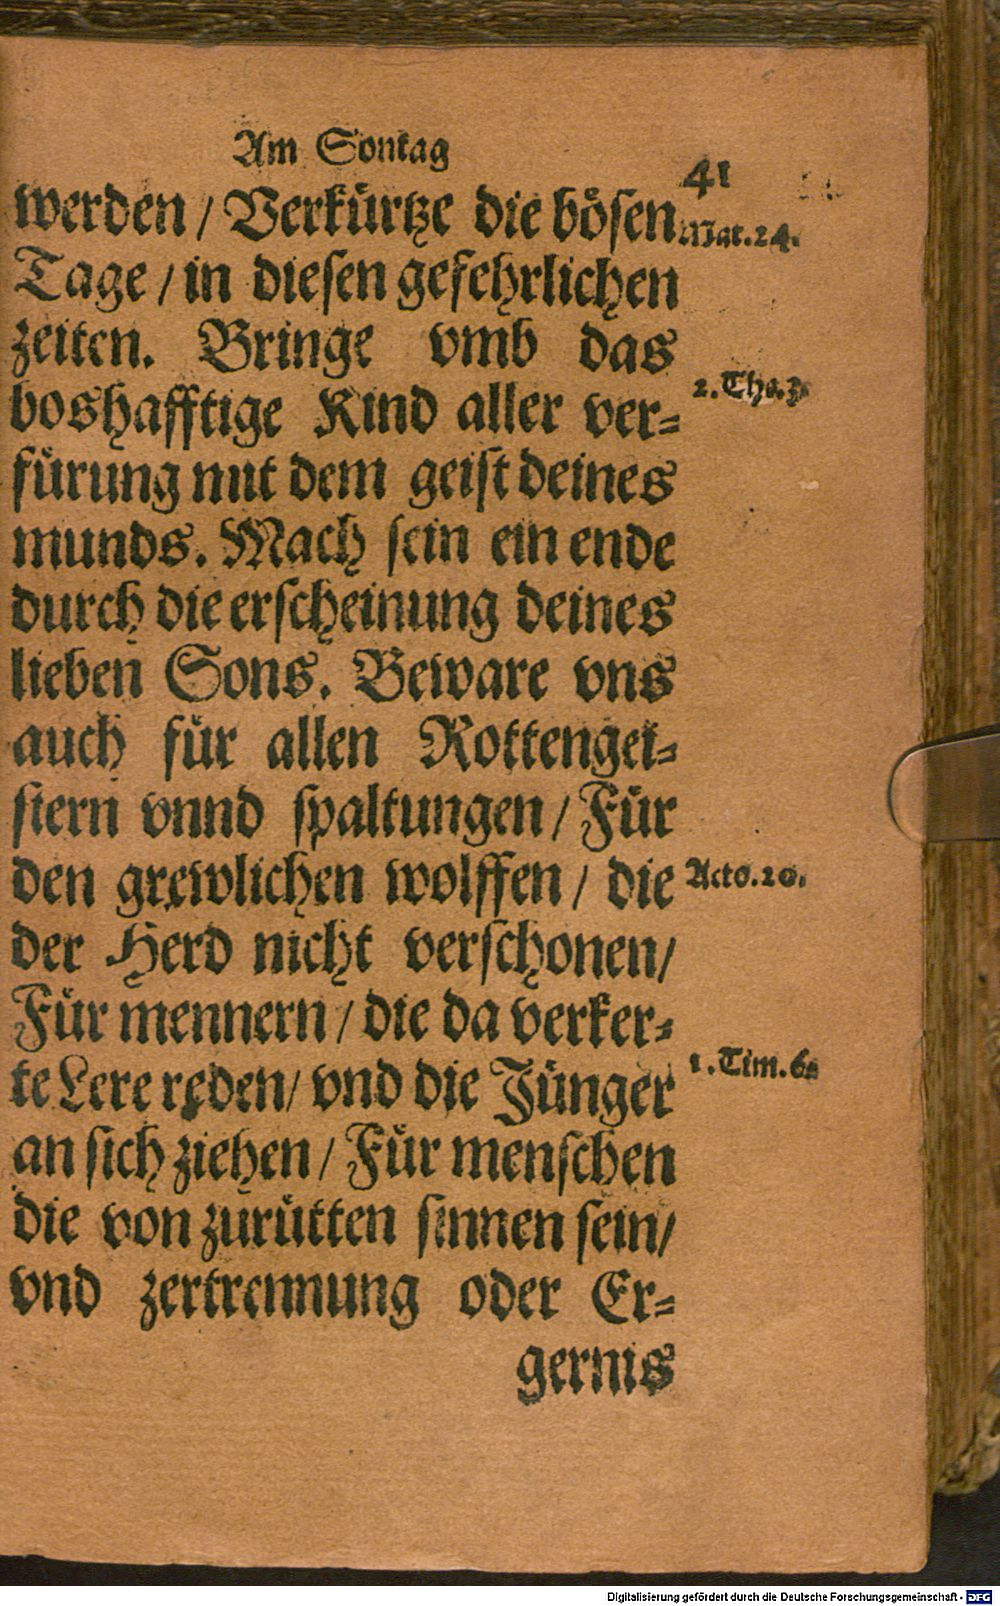 Am Sontag
41
werden / Verkürtze die bösen
Mat.24.
Tage / in diesen gefehrlichen
zeiten. Bringe vmb das
2. Thes.
boshafftige Kind aller ver=
fürung mit dem geist deines
munds. Mach sein ein ende
durch die erscheinung deines
lieben Sons. Beware vns
auch für allen Rottengei=
stern vnnd spaltungen / Für
den grewlichen wolffen / die
Acto.20.
der Herd nicht verschonen /
Für mennern / die da verker=
te Lere reden / vnd die Jünger
1. Tim.6.
an sich ziehen / Für menschen
die von zurütten sinnen sein /
vnd zertrennung oder Er=
gernis
Digitalisierung gefördert durch die Deutsche Forschungsgemeinschaft - DFG